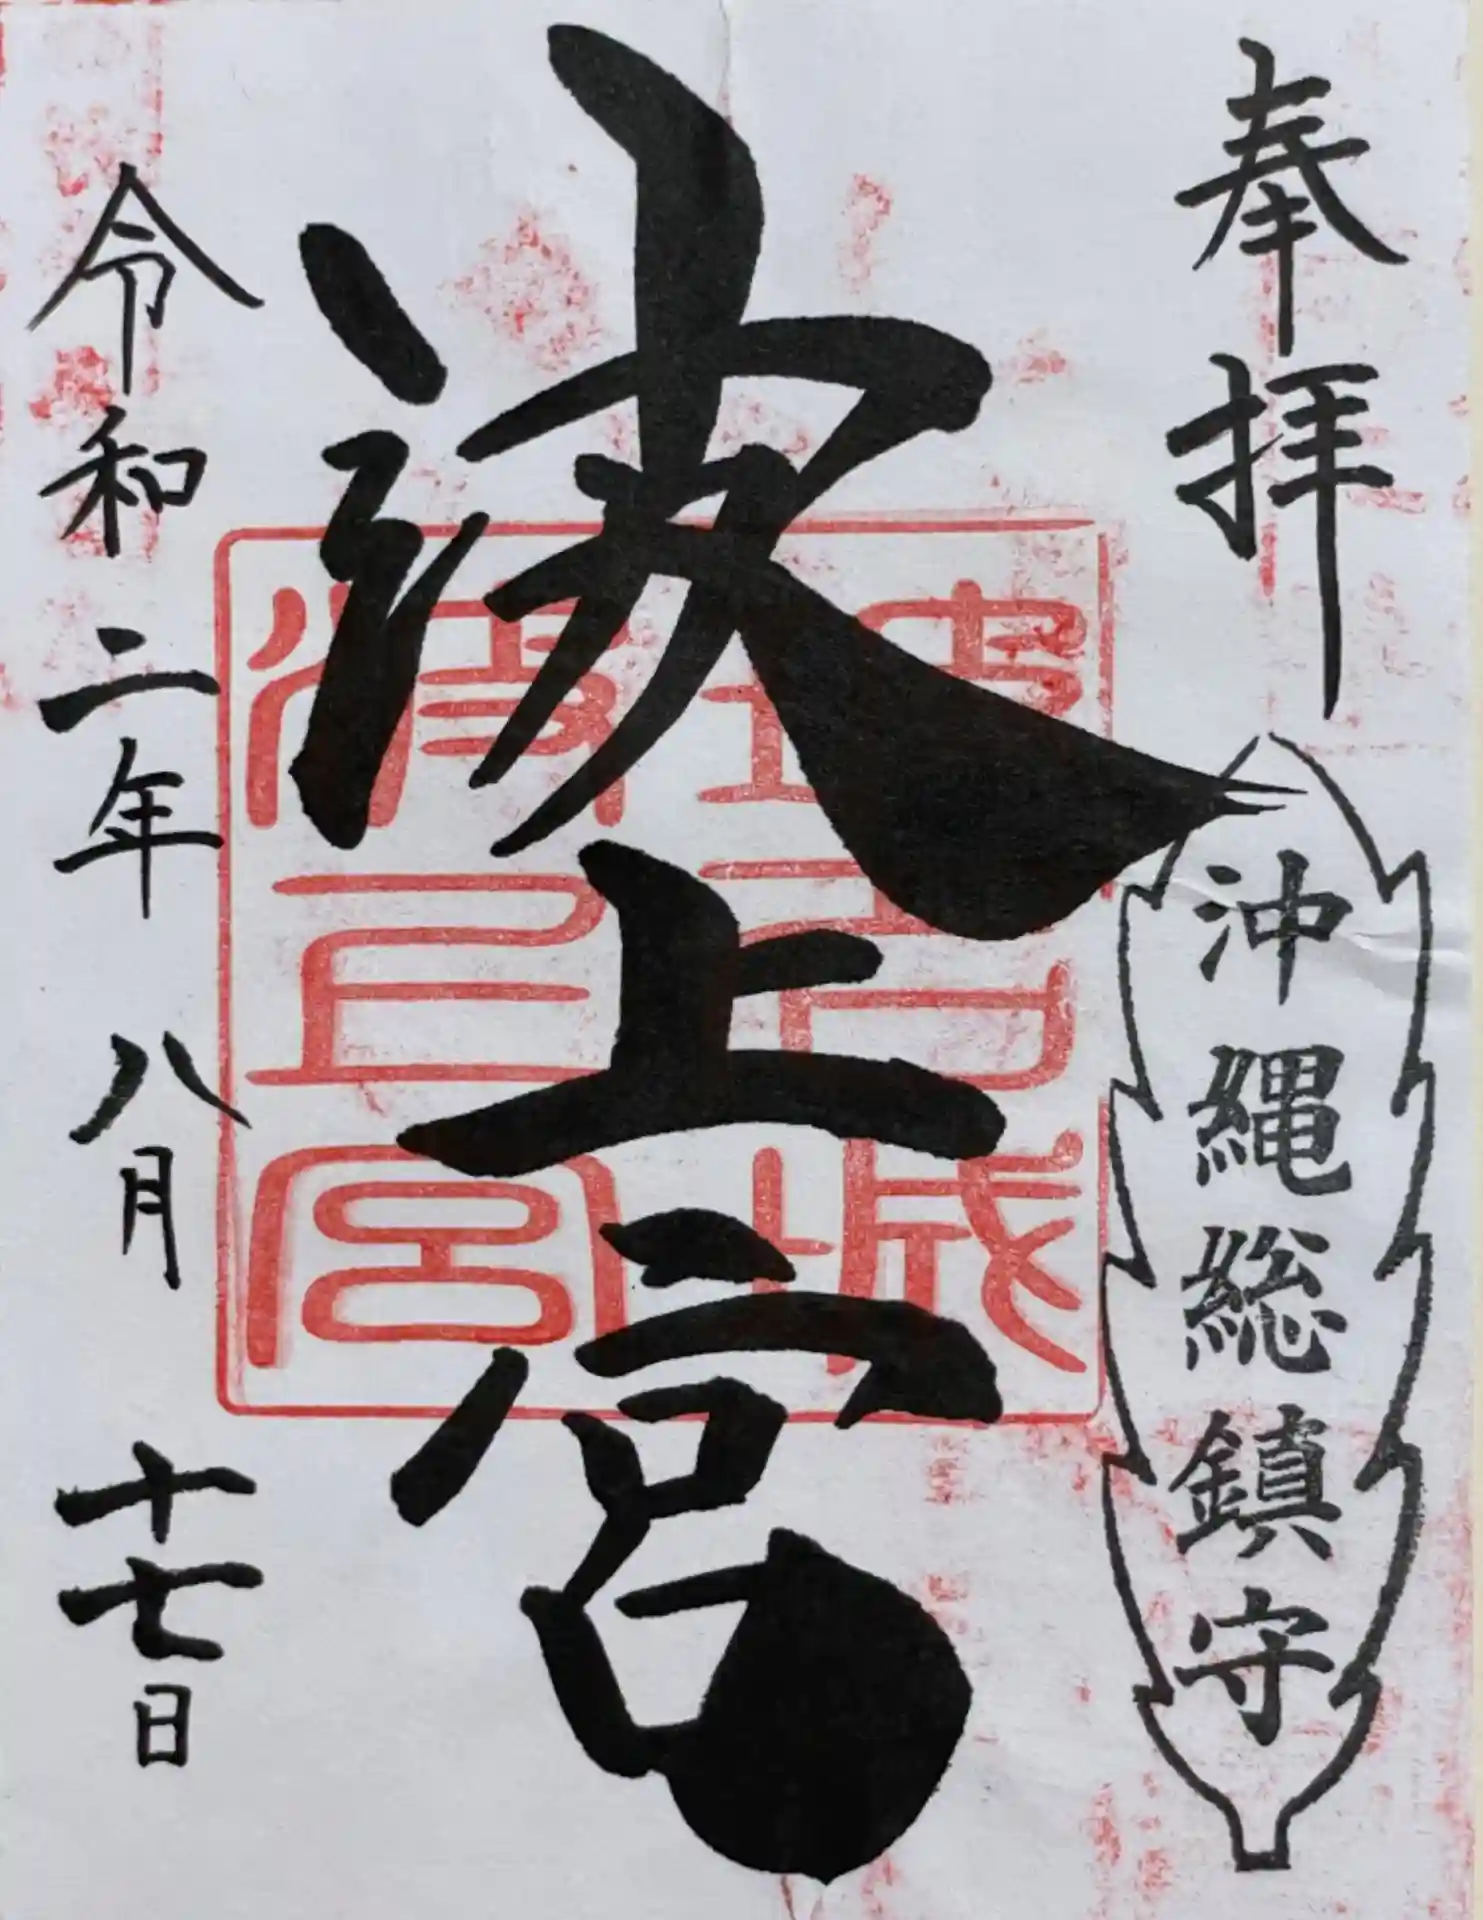 奉拝
沖縄総鎮守
波上宮
令和二年 八月 十七日
波上宮